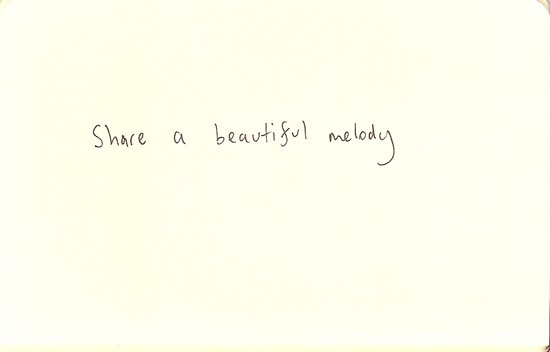 Share a beautiful melody